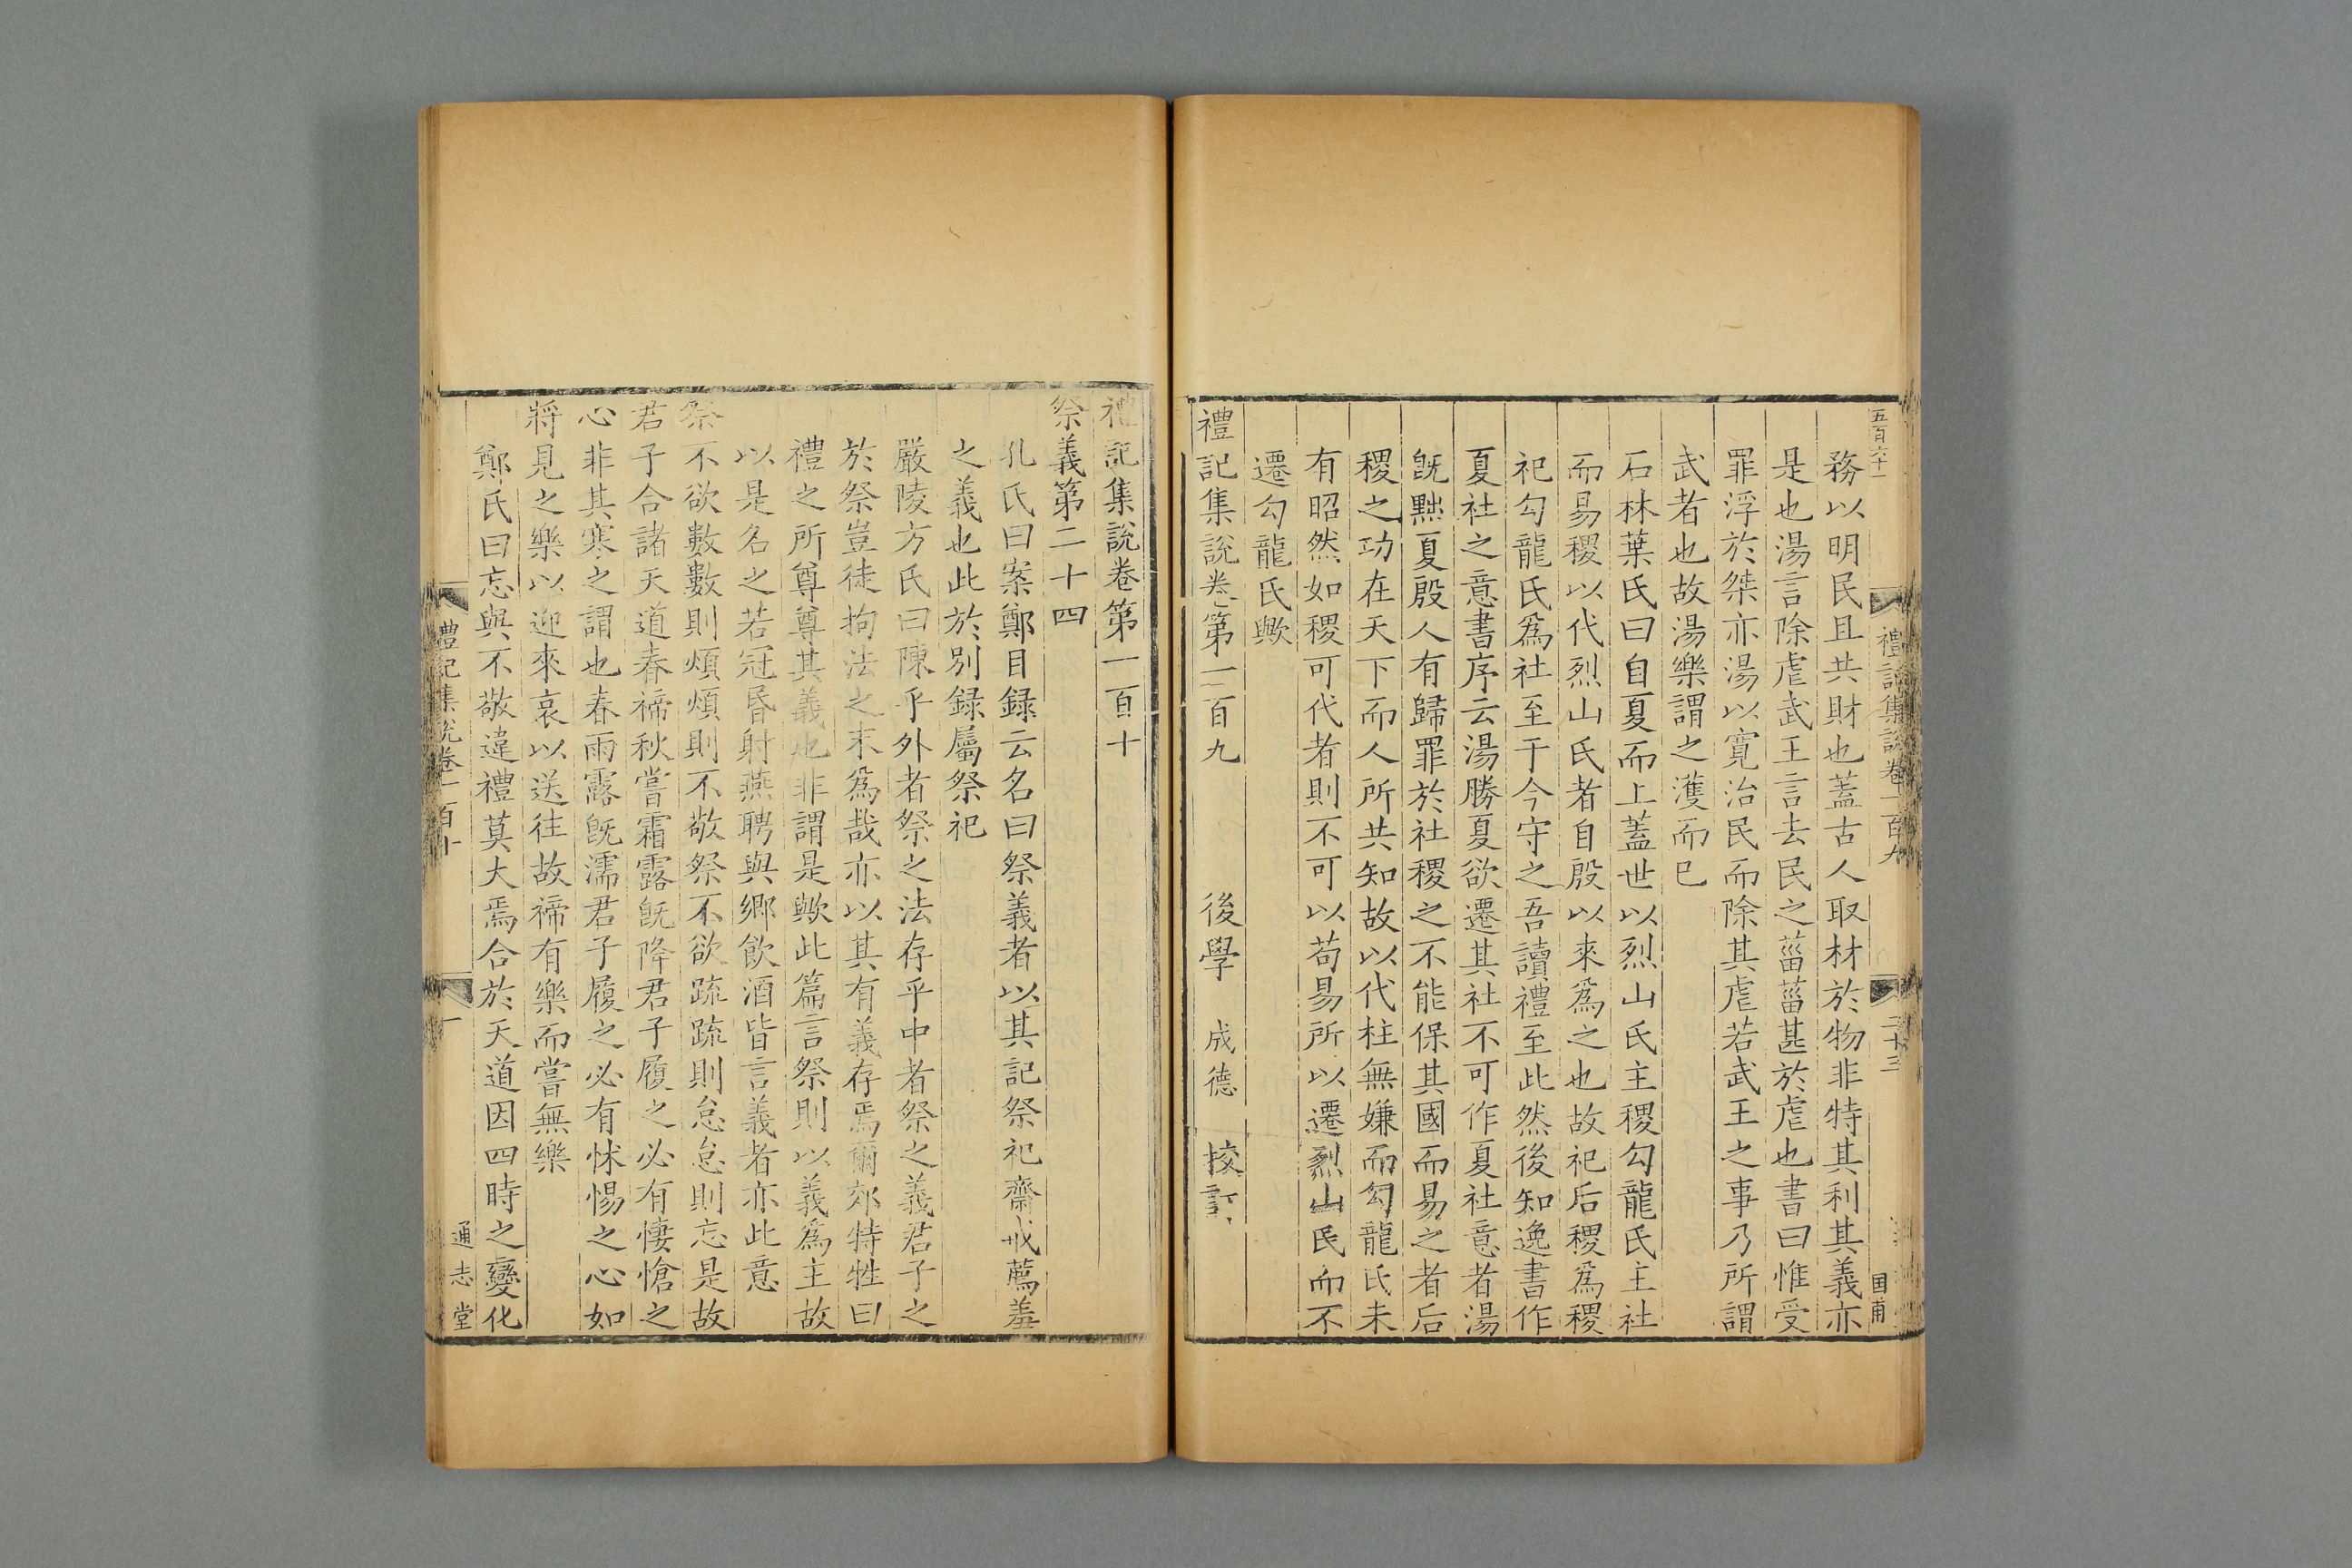 五百六十一
禮記集說卷一百九
二十三
国甫
務以明民且共財也蓋古人取材於物非特其利其義亦
是也湯言除虐武王言去民之菑菑甚於虐也書曰惟受
罪浮於桀亦湯以寬治民而除其虐若武王之事乃所謂
武者也故湯樂謂之濩而已
石林葉氏曰自夏而上蓋世以烈山氏主稷勾龍氏主社
而易稷以代烈山氏者自殷以來爲之也故祀后稷爲稷
祀勾龍氏爲社至于今守之吾讀禮至此然後知逸書作
夏社之意書序云湯勝夏欲遷其社不可作夏社意者湯
旣黜夏殷人有歸罪於社稷之不能保其國而易之者后
稷之功在天下而人所共知故以代柱無嫌而勾龍氏未
有昭然如稷可代者則不可以苟易所以遷烈山民而不
遷勾龍氏歟
禮記集說卷第一百九
後學 成德 挍訂
禮記集說卷第一百十
祭義第二十四
孔氏曰案鄭目録云名曰祭義者以其記祭祀齋戒薦羞
之義也此於別録屬祭祀
嚴陵方氏曰陳乎外者祭之法存乎中者祭之義君子之
於祭豈徒拘法之末爲哉亦以其有義存焉爾郊特牲曰
禮之所尊尊其義也非謂是歟此篇言祭則以義爲主故
以是名之若冠昏射燕聘與鄉飲酒皆言義者亦此意
祭不欲數數則煩煩則不敬祭不欲疏疏則怠怠則忘是故
君子合諸天道春禘秋嘗霜露旣降君子履之必有悽愴之
心非其寒之謂也春雨露旣濡君子履之必有怵惕之心如
將見之樂以迎來哀以送往故禘有樂而嘗無樂
鄭氏曰忘與不敬違禮莫大焉合於天道因四時之變化
禮記集說卷一百十
一
通志堂